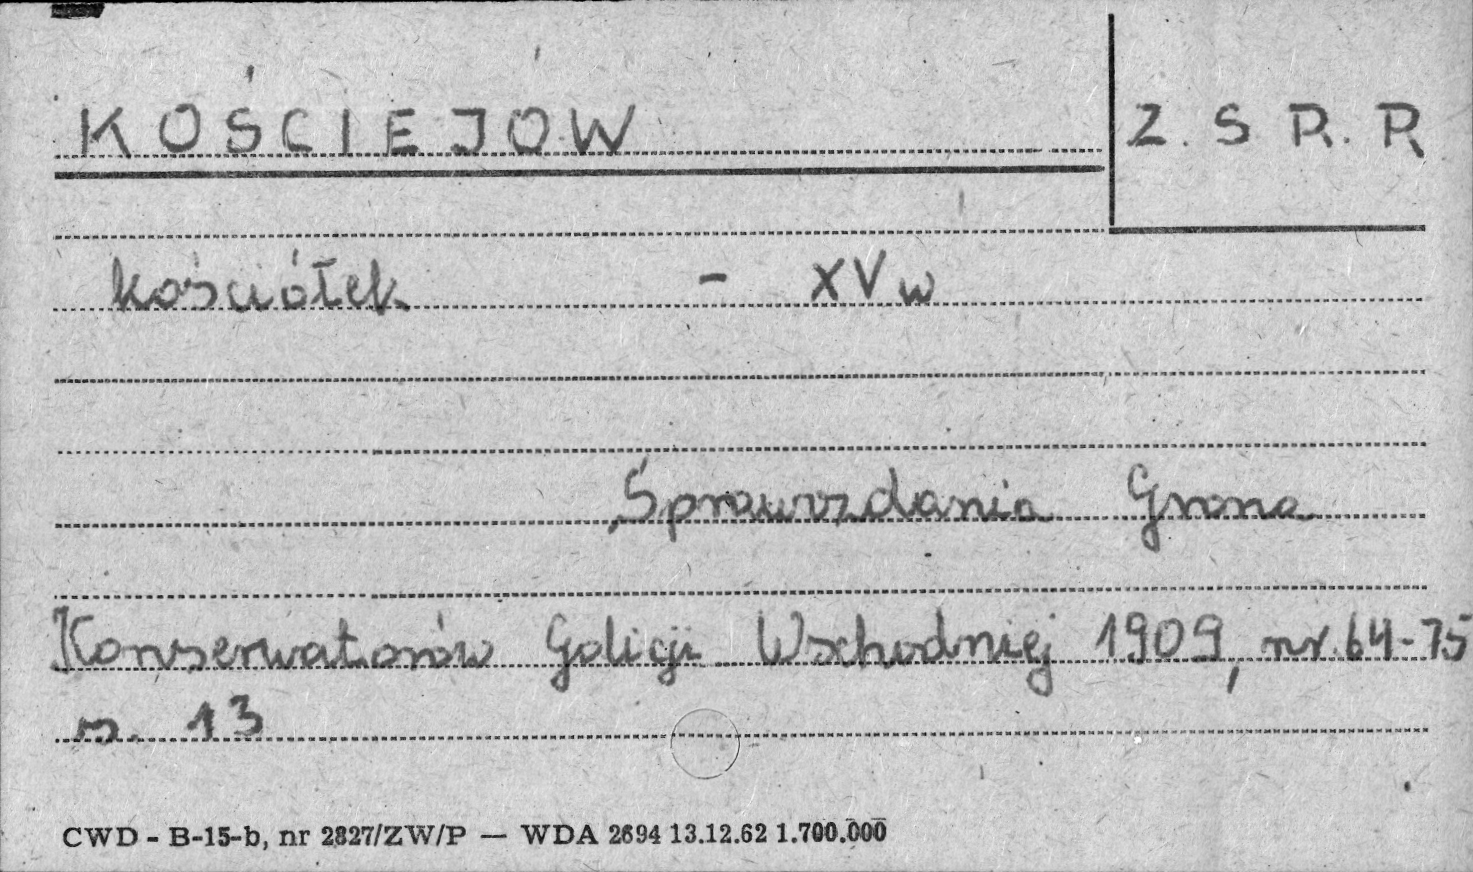 KOŚCIEJÓW
Z.S R.R
kościółek - XV w
Sprawozdania Grona
Konserwatorów Galicji Wschodniej 1909, nr. 64-75
s. 13
CWD - B-15-b, nr 2827/ZW/P — WDA 2694 13.12.62 1.700.000